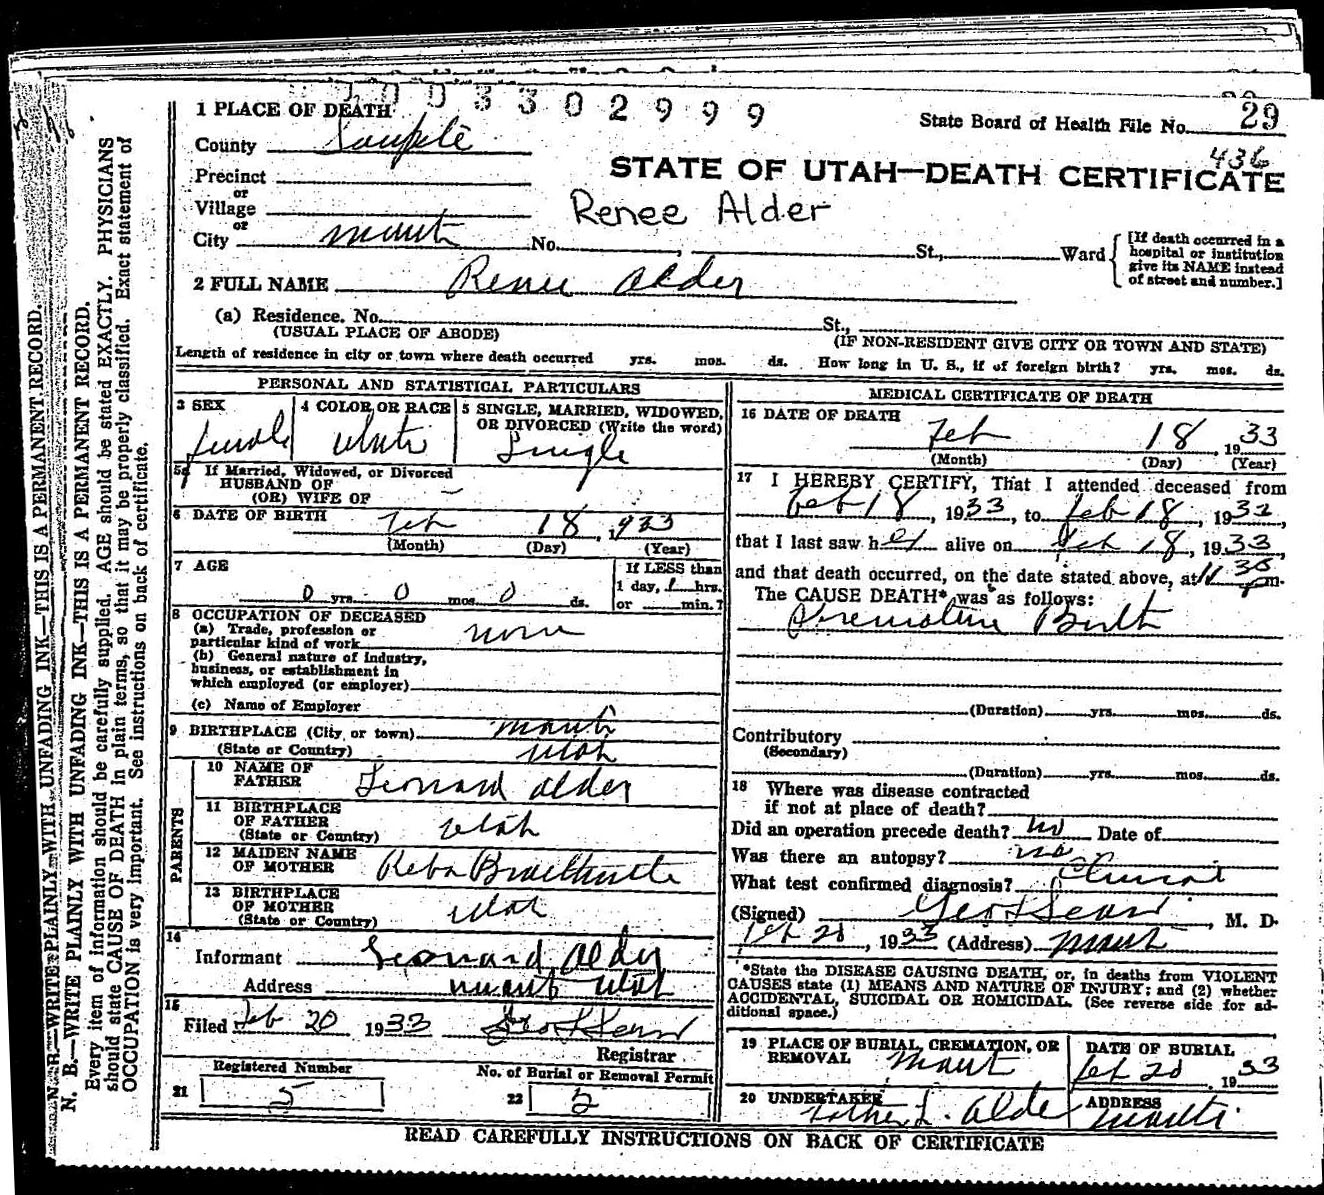 3302999
1 PLACE OF DEATH
State Board of Health File No. 29
County Sanpete
436
STATE OF UTAH—DEATH CERTIFICATE
Precinct
or
Village
Renee Alder
or
City Manti No. St., Ward
[If death occurred in a
hospital or institution
give its NAME instead
of street and number.]
2 FULL NAME Renee Alder
(a) Residence. No. St.,
(USUAL PLACE OF ABODE) (IF NON-RESIDENT GIVE CITY OR TOWN AND STATE)
Length of residence in city or town where death occurred yrs. mos. ds. How long in U. S., if of foreign birth? yrs. mos. ds.
PERSONAL AND STATISTICAL PARTICULARS
3 SEX 4 COLOR OR RACE 5 SINGLE, MARRIED, WIDOWED,
OR DIVORCED (Write the word)
female White Single
5a If Married, Widowed, or Divorced
HUSBAND OF
(OR) WIFE OF
6 DATE OF BIRTH Feb 18, 1933
(Month) (Day) (Year)
7 AGE If LESS than
1 day, 1 hrs.
0 yrs. 0 mos. 0 ds. or min.?
8 OCCUPATION OF DECEASED
(a) Trade, profession or
particular kind of work none
(b) General nature of industry,
business, or establishment in
which employed (or employer)
(c) Name of Employer
9 BIRTHPLACE (City or town) Manti
(State or Country) Utah
PARENTS
10 NAME OF
FATHER Leonard Alder
11 BIRTHPLACE
OF FATHER
(State or Country) Utah
12 MAIDEN NAME
OF MOTHER Reba Braithwaite
13 BIRTHPLACE
OF MOTHER
(State or Country) Utah
14
Informant Leonard Alder
Address Manti Utah
15
Filed Feb 20 1933 Geo L Sears
Registrar
Registered Number No. of Burial or Removal Permit
21 5 22 5
MEDICAL CERTIFICATE OF DEATH
16 DATE OF DEATH
Feb 18, 1933
(Month) (Day) (Year)
17 I HEREBY CERTIFY, That I attended deceased from
Feb 18, 1933, to Feb 18, 1933,
that I last saw her alive on Feb 18, 1933,
and that death occurred, on the date stated above, at 11 30 p m.
The CAUSE DEATH* was as follows:
Premature Birth
(Duration) yrs. mos. ds.
Contributory
(Secondary)
(Duration) yrs. mos. ds.
18 Where was disease contracted
if not at place of death?
Did an operation precede death? no Date of
Was there an autopsy? no
What test confirmed diagnosis? Clinical
(Signed) Geo L Sears, M. D.
Feb 20, 1933 (Address) Manti
*State the DISEASE CAUSING DEATH, or, in deaths from VIOLENT
CAUSES state (1) MEANS AND NATURE OF INJURY; and (2) whether
ACCIDENTAL, SUICIDAL OR HOMICIDAL. (See reverse side for ad-
ditional space.)
19 PLACE OF BURIAL, CREMATION, OR
REMOVAL Manti
DATE OF BURIAL
Feb 20, 1933
20 UNDERTAKER
L. Alder
ADDRESS
Manti
READ CAREFULLY INSTRUCTIONS ON BACK OF CERTIFICATE
N. B.—WRITE PLAINLY WITH UNFADING INK—THIS IS A PERMANENT RECORD.
N. B.—WRITE PLAINLY WITH UNFADING INK—THIS IS A PERMANENT RECORD.
Every item of information should be carefully supplied. AGE should be stated EXACTLY. PHYSICIANS
should state CAUSE OF DEATH in plain terms, so that it may be properly classified. Exact statement of
OCCUPATION is very important. See instructions on back of certificate.